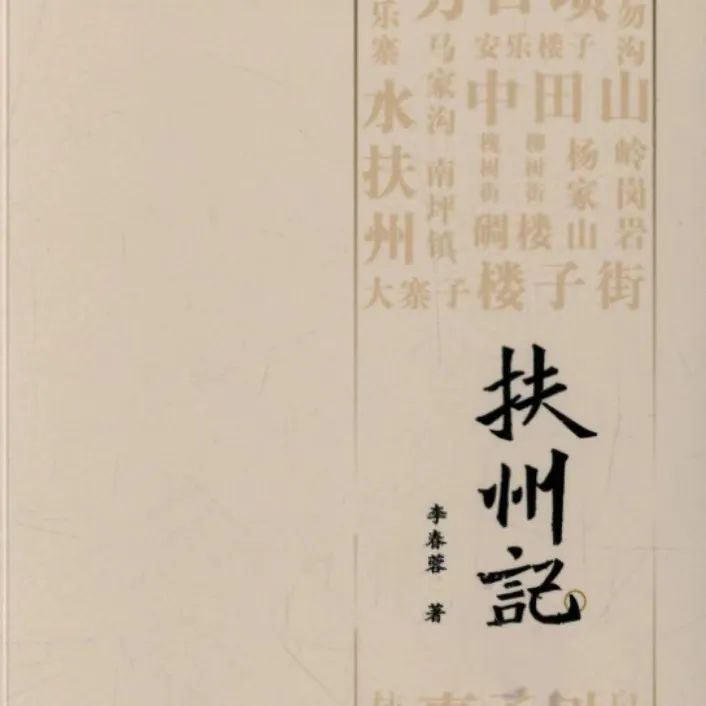 乐寨
水扶州
马家沟
南坪镇
安乐楼子
中田山
槐树街
柳树街
杨家山
岭岗岩
碉楼
大寨子
楼子街
勿沟
扶州記
李春蓉 著